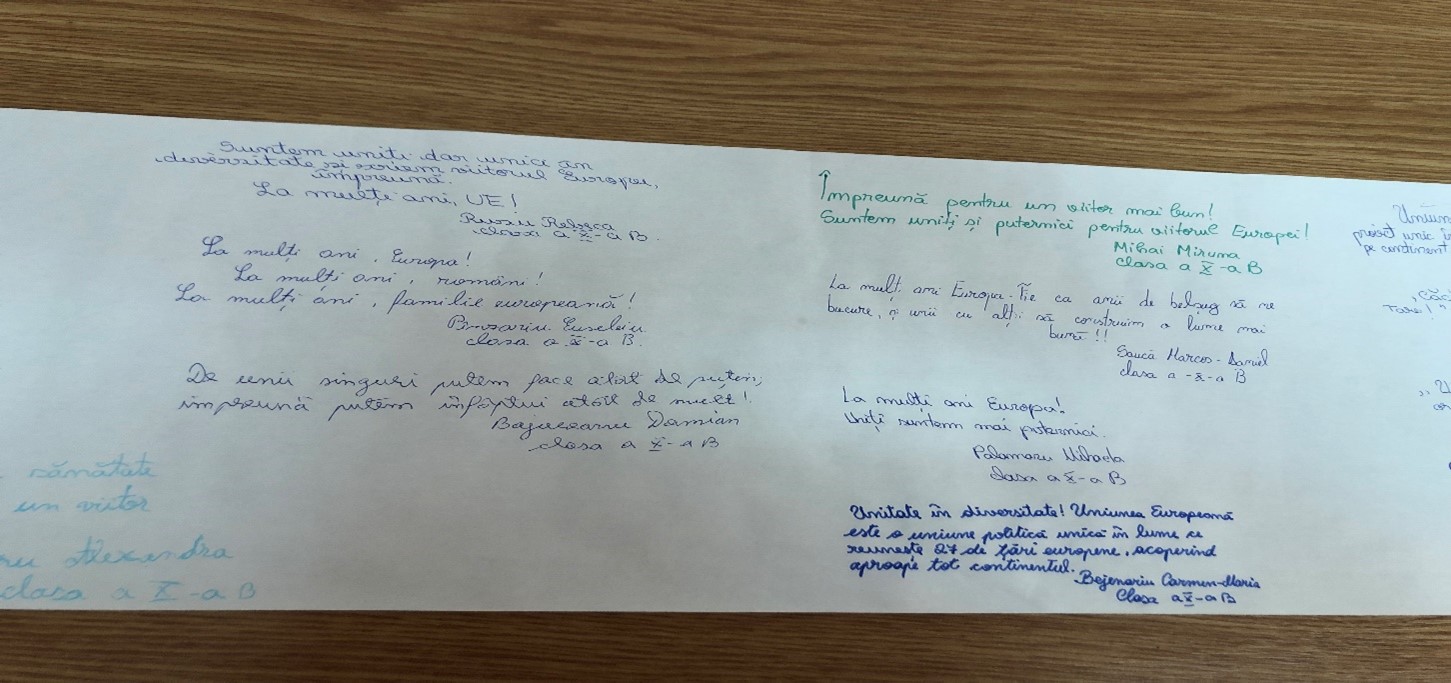 Suntem uniți dar unici în
diversitate și scriem viitorul Europei,
împreună.
La mulți ani, UE!
Rusu Rebeca
clasa a X-a B.
La mulți ani, Europa!
La mulți ani, români!
La mulți ani, familie europeană!
clasa a X-a B.
De unii singuri putem face atât de puțin;
împreună putem înfăptui atât de mult!
Damian
clasa a X-a B
sănătate
un viitor
Alexandra
clasa a X-a B
Împreună pentru un viitor mai bun!
Suntem uniți și puternici pentru viitorul Europei!
Mihai Miruna
Clasa a X-a B
La mulți ani Europa. Fie ca anii de belșug să ne
bucure, și unii cu alții să construim o lume mai
bună!!
Saucă Marcos-Daniel
clasa a -X-a B
La mulți ani Europa!
Uniți suntem mai puternici.
Palamaru Mihaela
Clasa a X-a B
Unitate în diversitate! Uniunea Europeană
este o uniune politică unică în lume ce
reunește 27 de țări europene, acoperind
aproape tot continentul.
Bejenariu Carmen-Maria
Clasa a X-a B
proiect unic în
pe continent
Tare!"